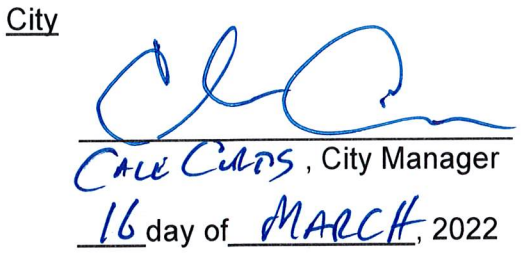 City
CALE CURTIS, City Manager
16 day of MARCH, 2022